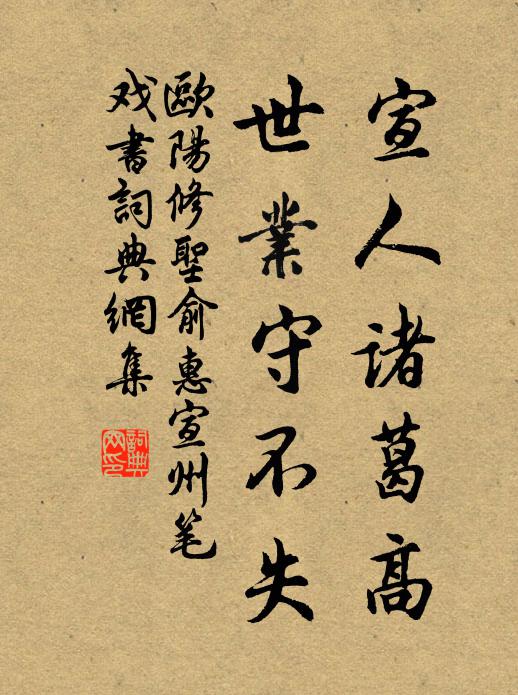 宣人諸葛高
世業守不失
歐陽修聖俞惠宣州笔
戏書詞典網集
詞典網印